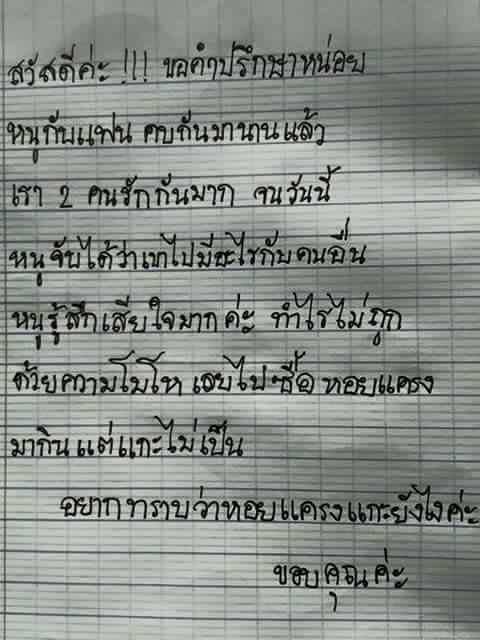 สวัสดีค่ะ !!! ขอคำปรึกษาหน่อย
หนูกับแฟน คบกันมานานแล้ว
เรา 2 คนรักกันมาก จนวันนี้
หนูจับได้ว่าเขาไปมีอะไรกับคนอื่น
หนูรู้สึกเสียใจมากค่ะ ทำไรไม่ถูก
ด้วยความโมโห เลยไปซื้อ หอยแครง
มากินแต่แกะไม่เป็น
อยากทราบว่าหอยแครงแกะยังไงค่ะ
ขอบคุณค่ะ